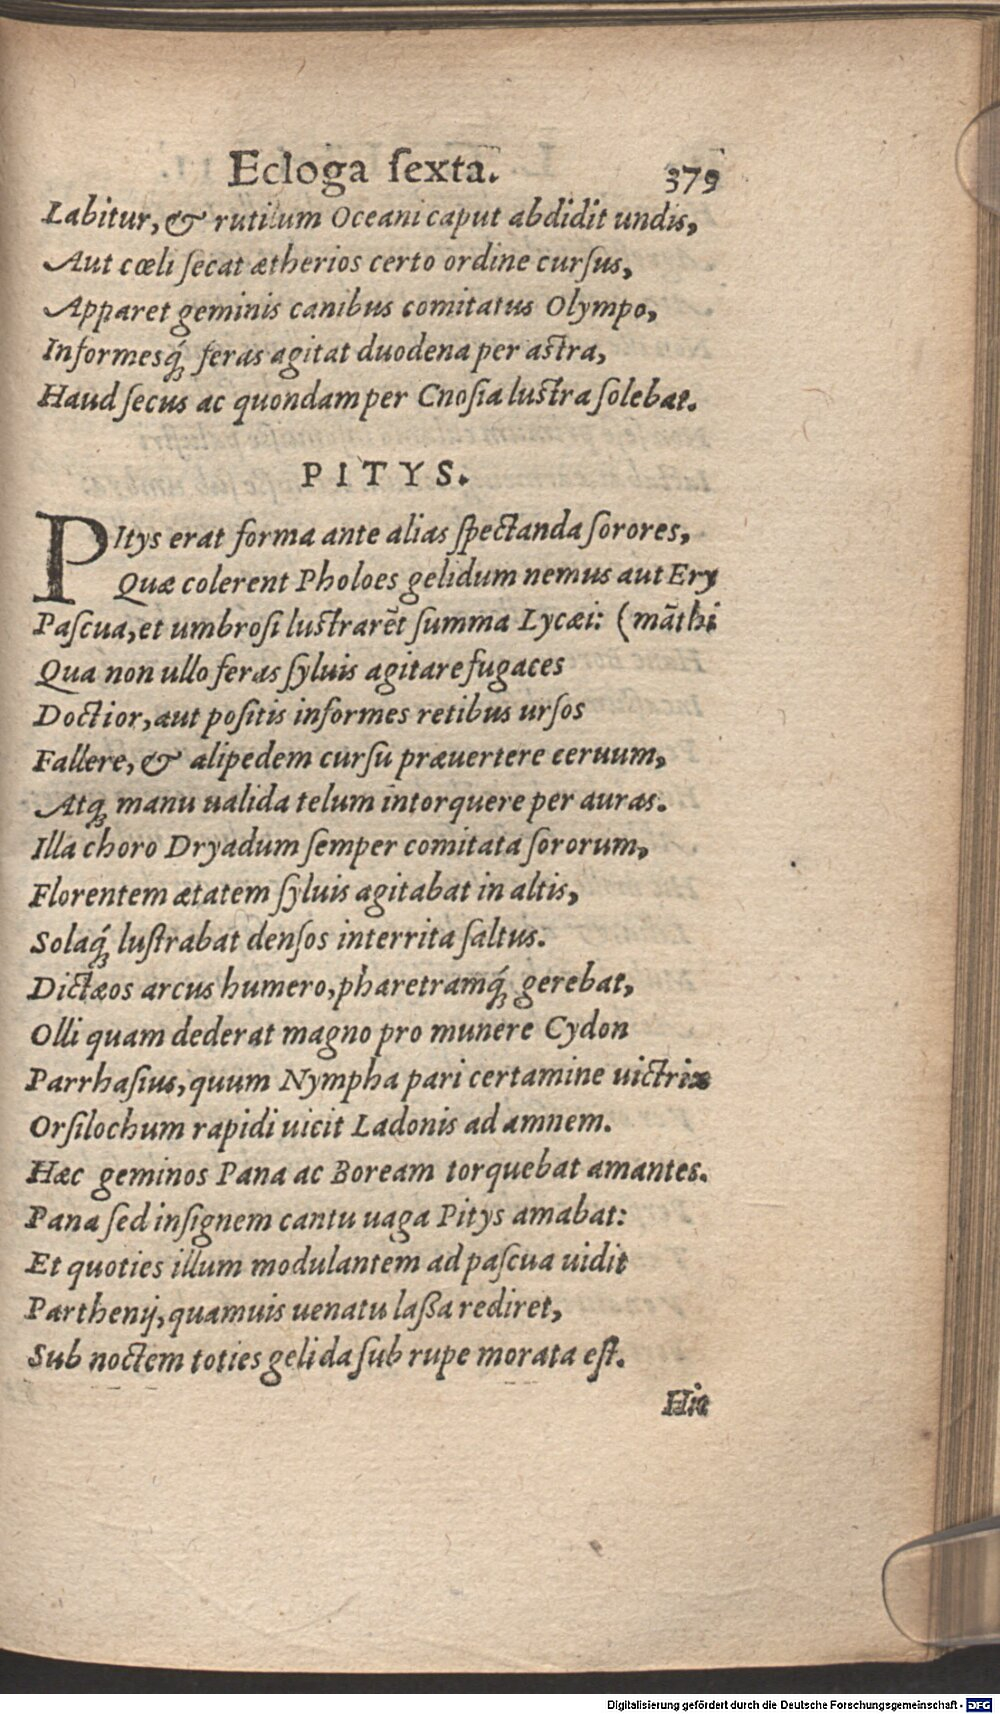 Ecloga ſexta. 379
Labitur, & rutilum Oceani caput abdidit undis,
Aut cœli ſecat ætherios certo ordine curſus,
Apparet geminis canibus comitatus Olympo,
Informesq́; feras agitat duodena per aſtra,
Haud ſecus ac quondam per Cnoſia luſtra ſolebat.
PITYS.
PItys erat forma ante alias ſpectanda ſorores,
Quæ colerent Pholoes gelidum nemus aut Ery
Paſcua, et umbroſi luſtrarẽt ſumma Lycæi: (mãthi
Qua non ullo feras ſyluis agitare fugaces
Doctior, aut poſitis informes retibus urſos
Fallere, & alipedem curſu præuertere ceruum,
Atq; manu ualida telum intorquere per auras.
Illa choro Dryadum ſemper comitata ſororum,
Florentem ætatem ſyluis agitabat in altis,
Solaq́; luſtrabat denſos interrita ſaltus.
Dictæos arcus humero, pharetramq́; gerebat,
Olli quam dederat magno pro munere Cydon
Parrhaſius, quum Nympha pari certamine uictrix
Orſilochum rapidi uicit Ladonis ad amnem.
Hæc geminos Pana ac Boream torquebat amantes.
Pana ſed inſignem cantu uaga Pitys amabat:
Et quoties illum modulantem ad paſcua uidit
Parthenij, quamuis uenatu laßa rediret,
Sub noctem toties gelida ſub rupe morata eſt.
Hic
Digitalisierung gefördert durch die Deutsche Forschungsgemeinschaft - DFG